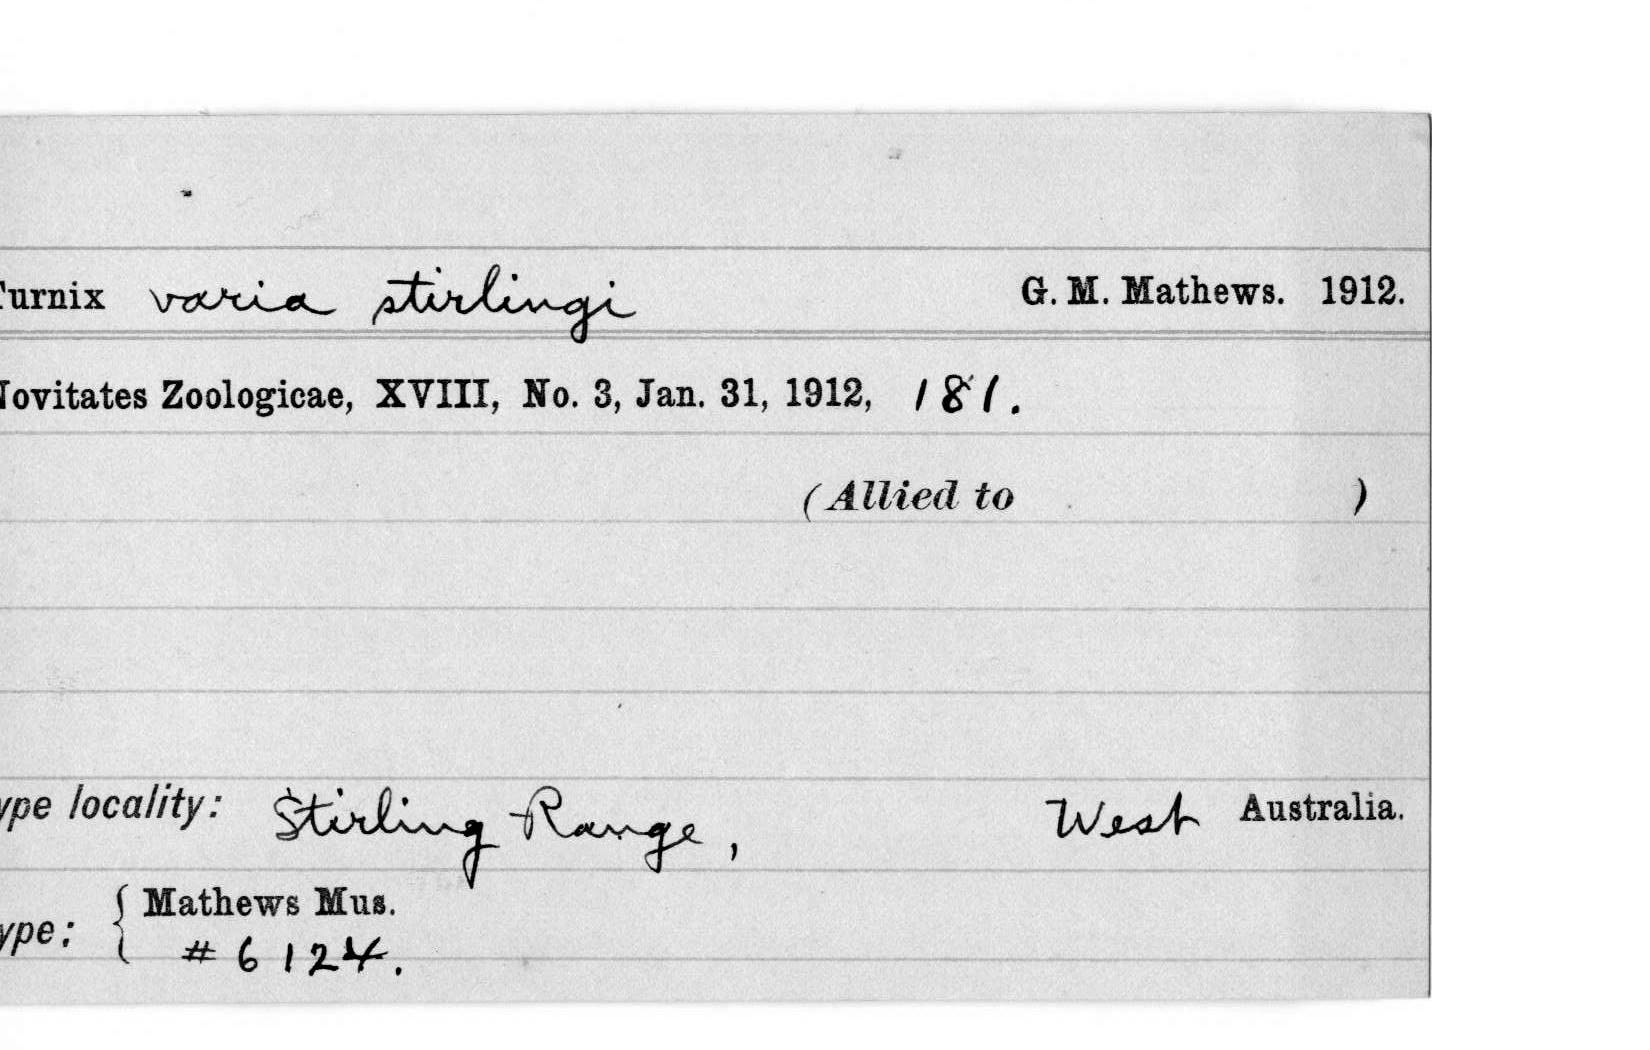 Turnix varia stirlingi G. M. Mathews. 1912.
Novitates Zoologicae, XVIII, No. 3, Jan. 31, 1912, 181.
(Allied to )
ype locality: Stirling Range, West Australia.
ype: { Mathews Mus.
# 6124.